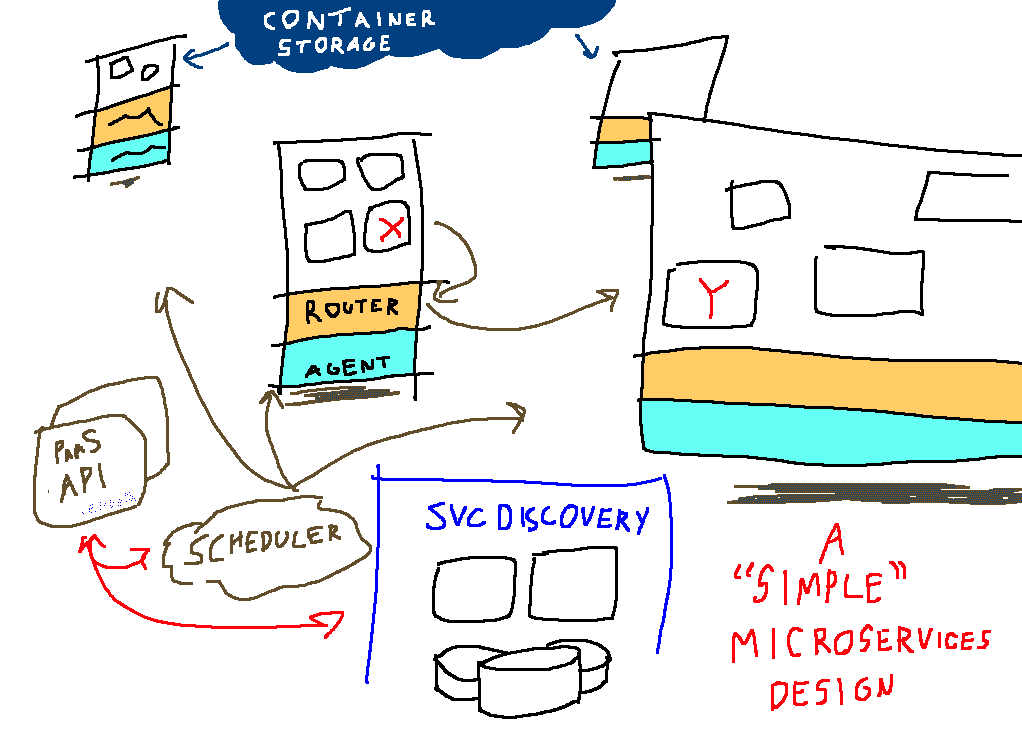 CONTAINER
STORAGE
X
ROUTER
AGENT
Y
PAAS
API
SCHEDULER
SVC DISCOVERY
A
"SIMPLE"
MICROSERVICES
DESIGN